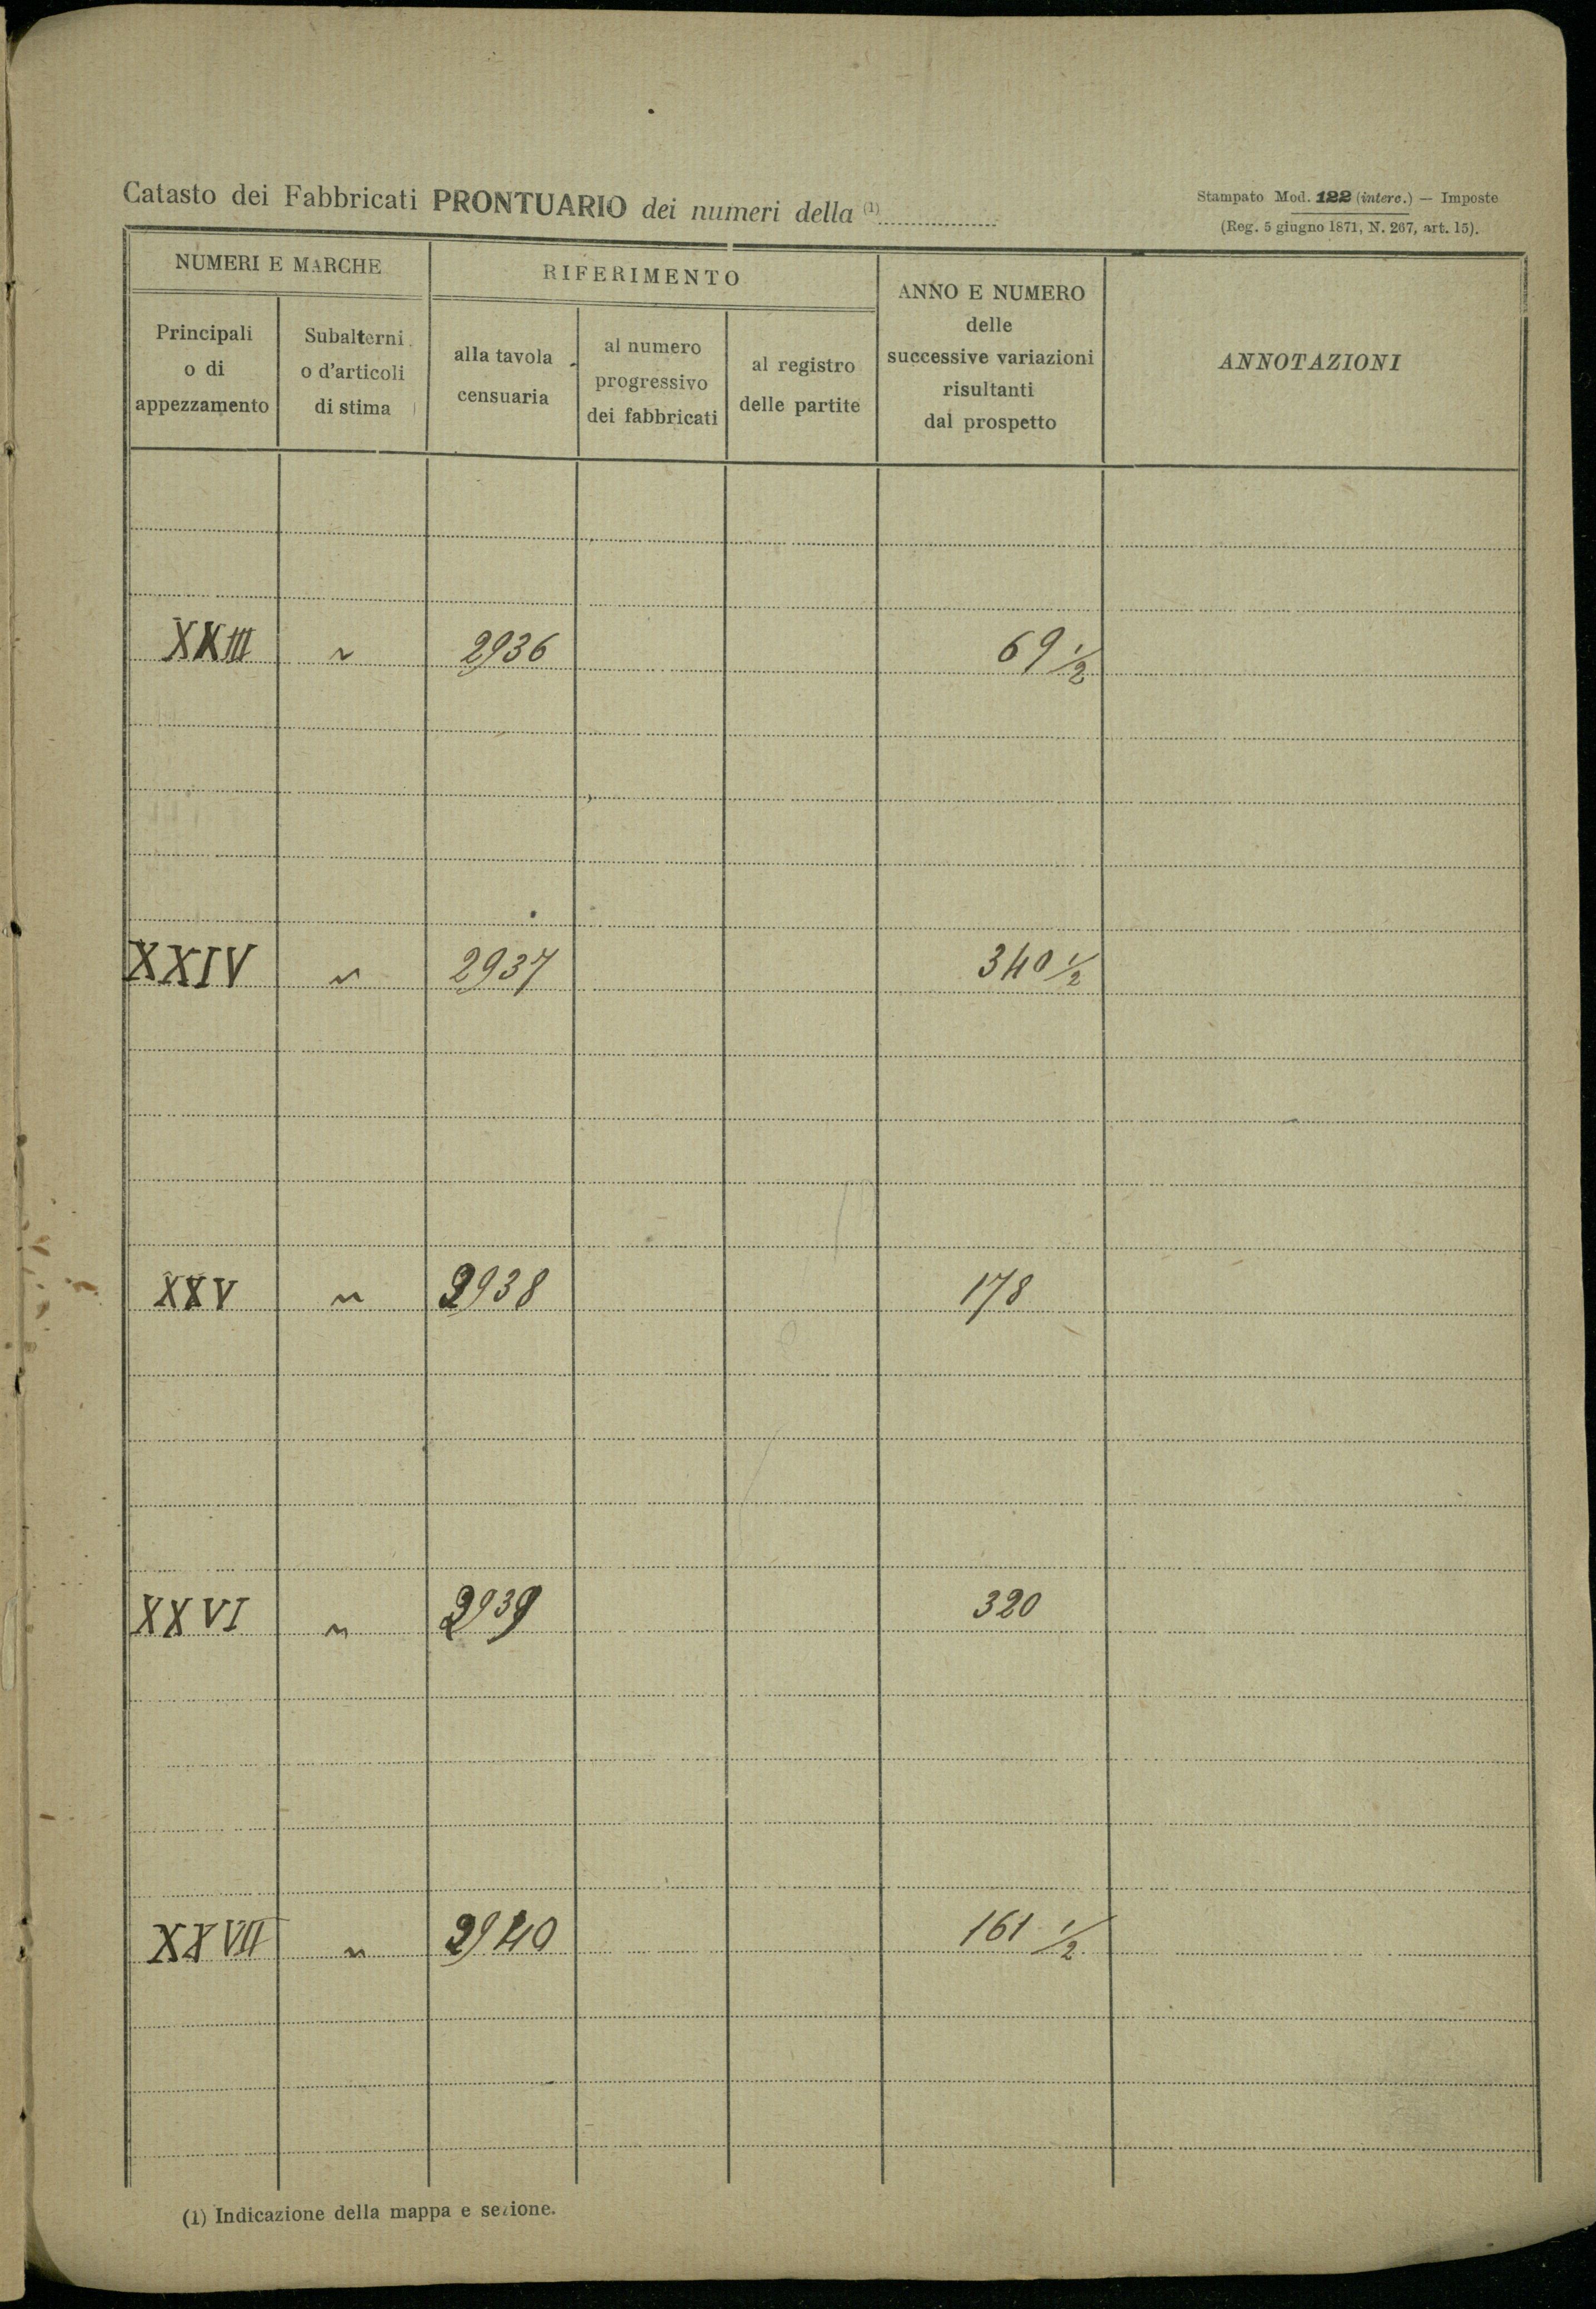 Catasto dei Fabbricati PRONTUARIO dei numeri della (1)
Stampato Mod. 122 (interc.) — Imposte
(Reg. 5 giugno 1871, N. 267, art. 15).
NUMERI E MARCHE
RIFERIMENTO
ANNO E NUMERO
delle
successive variazioni
risultanti
dal prospetto
ANNOTAZIONI
Principali
o di
appezzamento
Subalterni
o d'articoli
di stima
alla tavola
censuaria
al numero
progressivo
dei fabbricati
al registro
delle partite
XXIII ~ 2936 69 1/2
XXIV ~ 2937 340 1/2
XXV ~ 2938 178
XXVI ~ 2939 320
XXVII ~ 2940 161 1/2
(1) Indicazione della mappa e sezione.